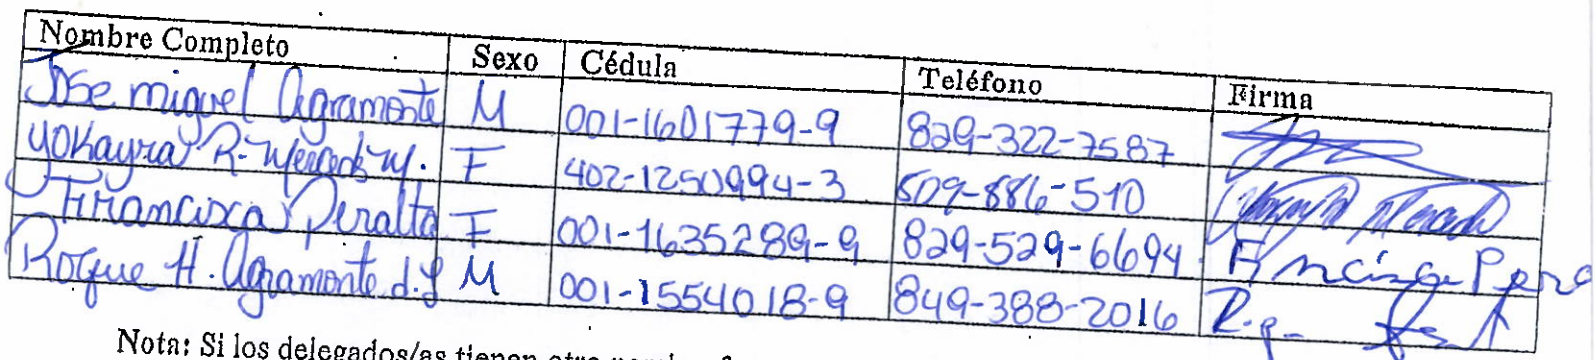 Nombre Completo Sexo Cédula Teléfono Firma
Jose miguel Agramonte M 001-1601779-9 829-322-7587
Yokayra R. Mercedes M. F 402-1250994-3 509-886-510
Francisca Peralta F 001-1635289-9 829-529-6694
Roque H. Agramonte d.J M 001-1554018-9 849-388-2016
Nota: Si los delegados/as tienen otro